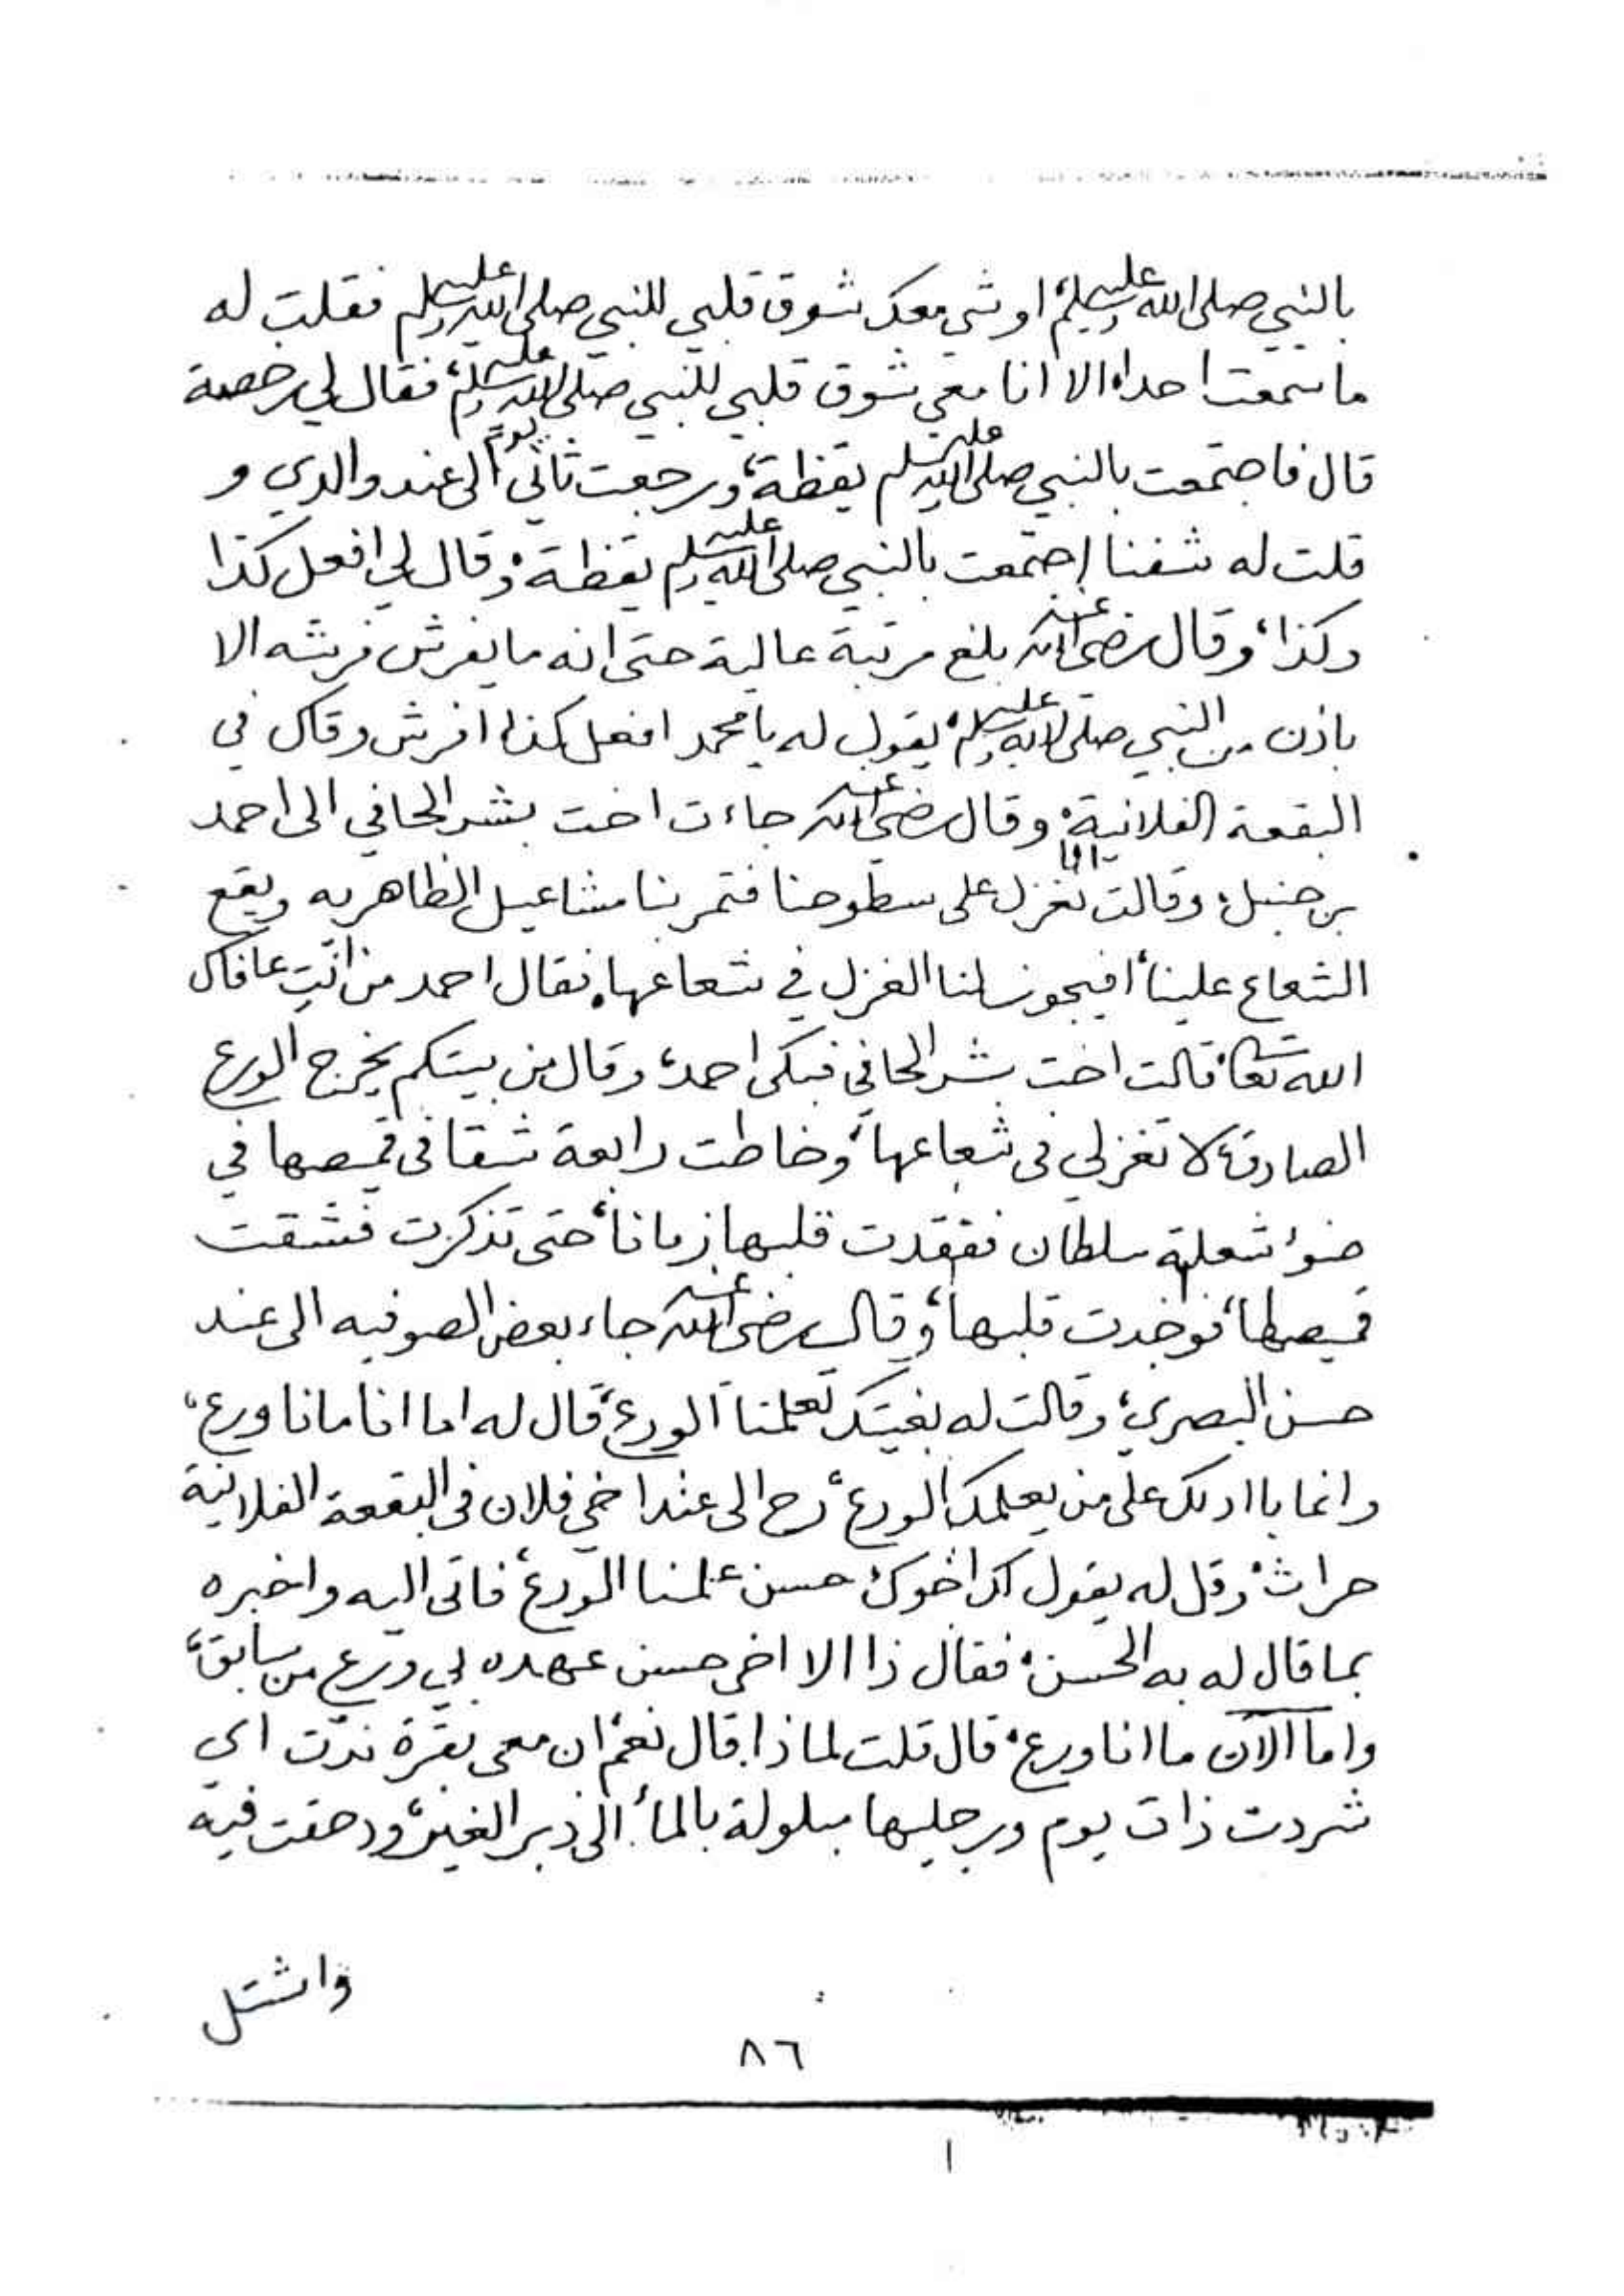 بالنبي صلى الله عليه وسلم، او شي معك شوق قلبي للنبي صلى الله عليه وسلم فقلت له
ما سمعت احدا، الا انا معي شوق قلبي للنبي صلى الله عليه وسلم، فقال لي رخصة
قال فاجتمعت بالنبي صلى الله عليه وسلم يقظة، ورجعت ثاني يوم الى عند والدي و
قلت له شفنا اجتمعت بالنبي صلى الله عليه وسلم يقظة، وقال لي افعل كذا
وكذا، وقال رضي الله عنه بلغ مرتبة عالية حتى انه ما يفرش فرشه الا
باذن من النبي صلى الله عليه وسلم، يقول له يا محمد افعل كذا افرش وقال في
البقعة الفلانية، وقال رضي الله عنه جاءت اخت بشر الحافي الى احمد
بن حنبل، وقالت انا نغزل على سطوحنا فتمر بنا مشاعيل الظاهريه ويقع
الشعاع علينا، افيجوز لنا الغزل في شعاعها، فقال احمد من انتِ عافاك
الله تعالى، قالت اخت بشر الحافي فبكى احمد، وقال من بيتكم يخرج الورع
الصادق، لا تغزلي في شعاعها، وخاطت رابعة شقا في قميصها في
ضوء شعلة سلطان ففقدت قلبها زمانا، حتى تذكرت فشقت
قميصها، فوجدت قلبها، وقال رضي الله عنه جاء بعض الصوفيه الى عند
حسن البصري، وقالت له بغيتك تعلمنا الورع، قال له اما انا مانا ورع،
وانما با ادلك على من يعلمك الورع، رح الى عند اخي فلان في البقعة الفلانية
حراث، وقل له يقول لك اخوك حسن علمنا الورع، فاتى اليه واخبره
بما قال له به الحسن، فقال ذا الا اخي حسن عهده بي ورع من سابق،
واما الآن ما انا ورع، قال قلت لماذا قال نعم، ان معي بقرة ندّت اي
شردت ذات يوم ورجليها مبلولة بالماء الى ذبر الغير، ودحقت فيه
واشتل
٨٦